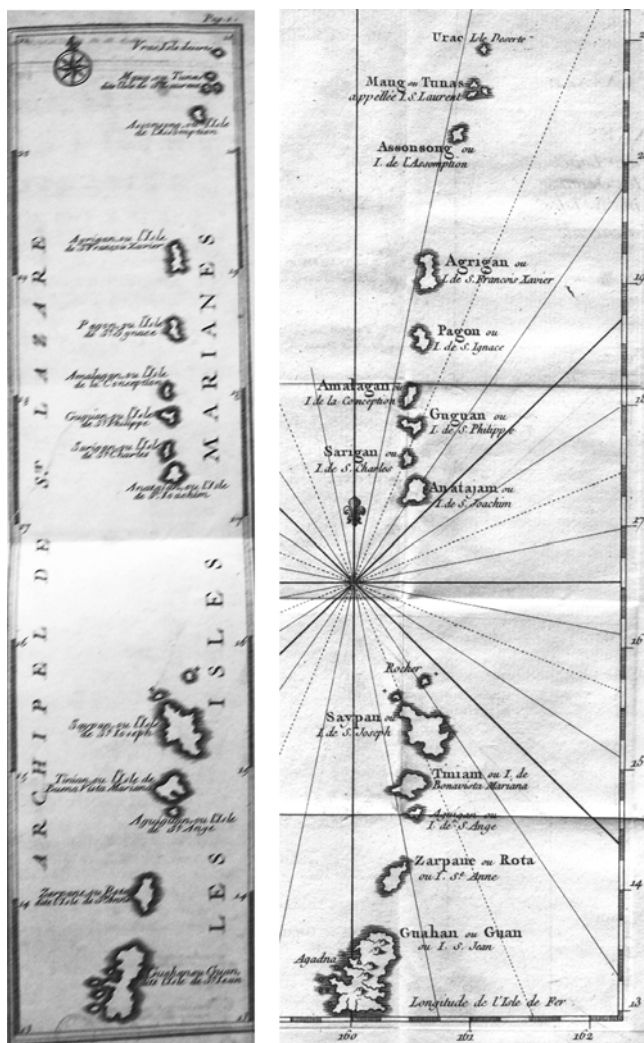 Pag. 1.
Vrac Isle deserte
Maug ou Tunas
dite l'Isle de St. Laurens
Assonsong ou l'Isle
de l'Assomption
20
Agrigan, ou l'Isle
de St. François Xavier
19
19
Pagon ou l'Isle
de St. Ignace
Amalagan ou l'Isle
de la Conception
18
18
Guguan ou l'Isle
de St. Philippe
Sarigan ou l'Isle
de St. Charles
Anatajan ou l'Isle
de S. Joachim
17
17
16
16
Saypan ou l'Isle
de St. Ioseph
15
15
Tinian ou l'Isle de
Buena Vista Mariana
Aguiguan ou l'Isle
de St. Ange
Zarpane ou Rota
dite l'Isle de Ste. Anne
14
14
Guahan ou Guan
dite l'Isle de St. Iean
13
13
ARCHIPEL DE ST. LAZARE
LES ISLES MARIANES
Urac Isle Deserte
Maug ou Tunas
appellée I. S. Laurent
Assonsong ou
I. de l'Assomption
20
Agrigan ou
I. de S. François Xavier
19
Pagon ou
I. de S. Ignace
Amalagan ou
I. de la Conception
18
Guguan ou
I. de S. Philippe
Sarigan ou
I. de S. Charles
Anatajam ou
I. de S. Joachim
17
16
Rocher
Saypan ou
I. de S. Joseph
15
Tiniam ou I. de
Bonavista Mariana
Aguigan ou
I. de S. Ange
Zarpane ou Rota
ou I. Ste. Anne
14
Guahan ou Guan
ou I. S. Jean
Agadna
Longitude de l'Isle de Fer
13
160
161
162